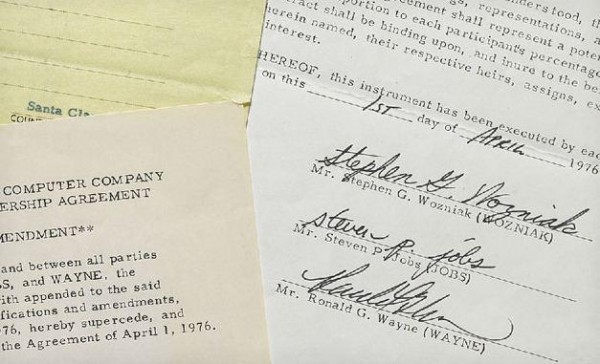 Santa Cla
COUN
COMPUTER COMPANY
ERSHIP AGREEMENT
MENDMENT**
and between all parties
BS, and WAYNE, the
ith appended to the said
ifications and amendments,
76, hereby supercede, and
the Agreement of April 1, 1976.
gs, representations, a
eement shall represent a poten
oportion to each participant's percentage
ract shall be binding upon, and inure to the be
herein named, their respective heirs, assigns, ex
interest.
HEREOF, this instrument has been executed by eac
on this 1ST day of APRIL 1976
Stephen G. Wozniak
Mr. Stephen G. Wozniak (WOZNIAK)
steven p. jobs
Mr. Steven P. Jobs (JOBS)
Mr. Ronald G. Wayne (WAYNE)